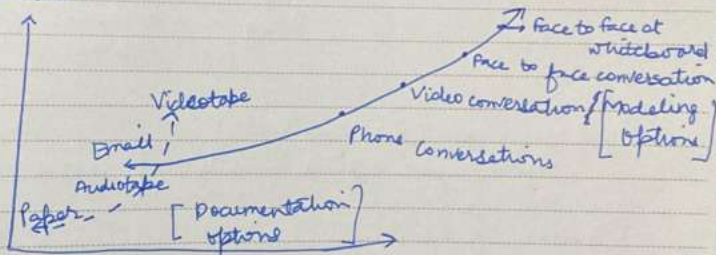 Face to face at
whiteboard
Face to face conversation
Videotape
Video conversation
[Modeling
options]
Email
Phone Conversations
Audiotape
Paper
[Documentation
options]